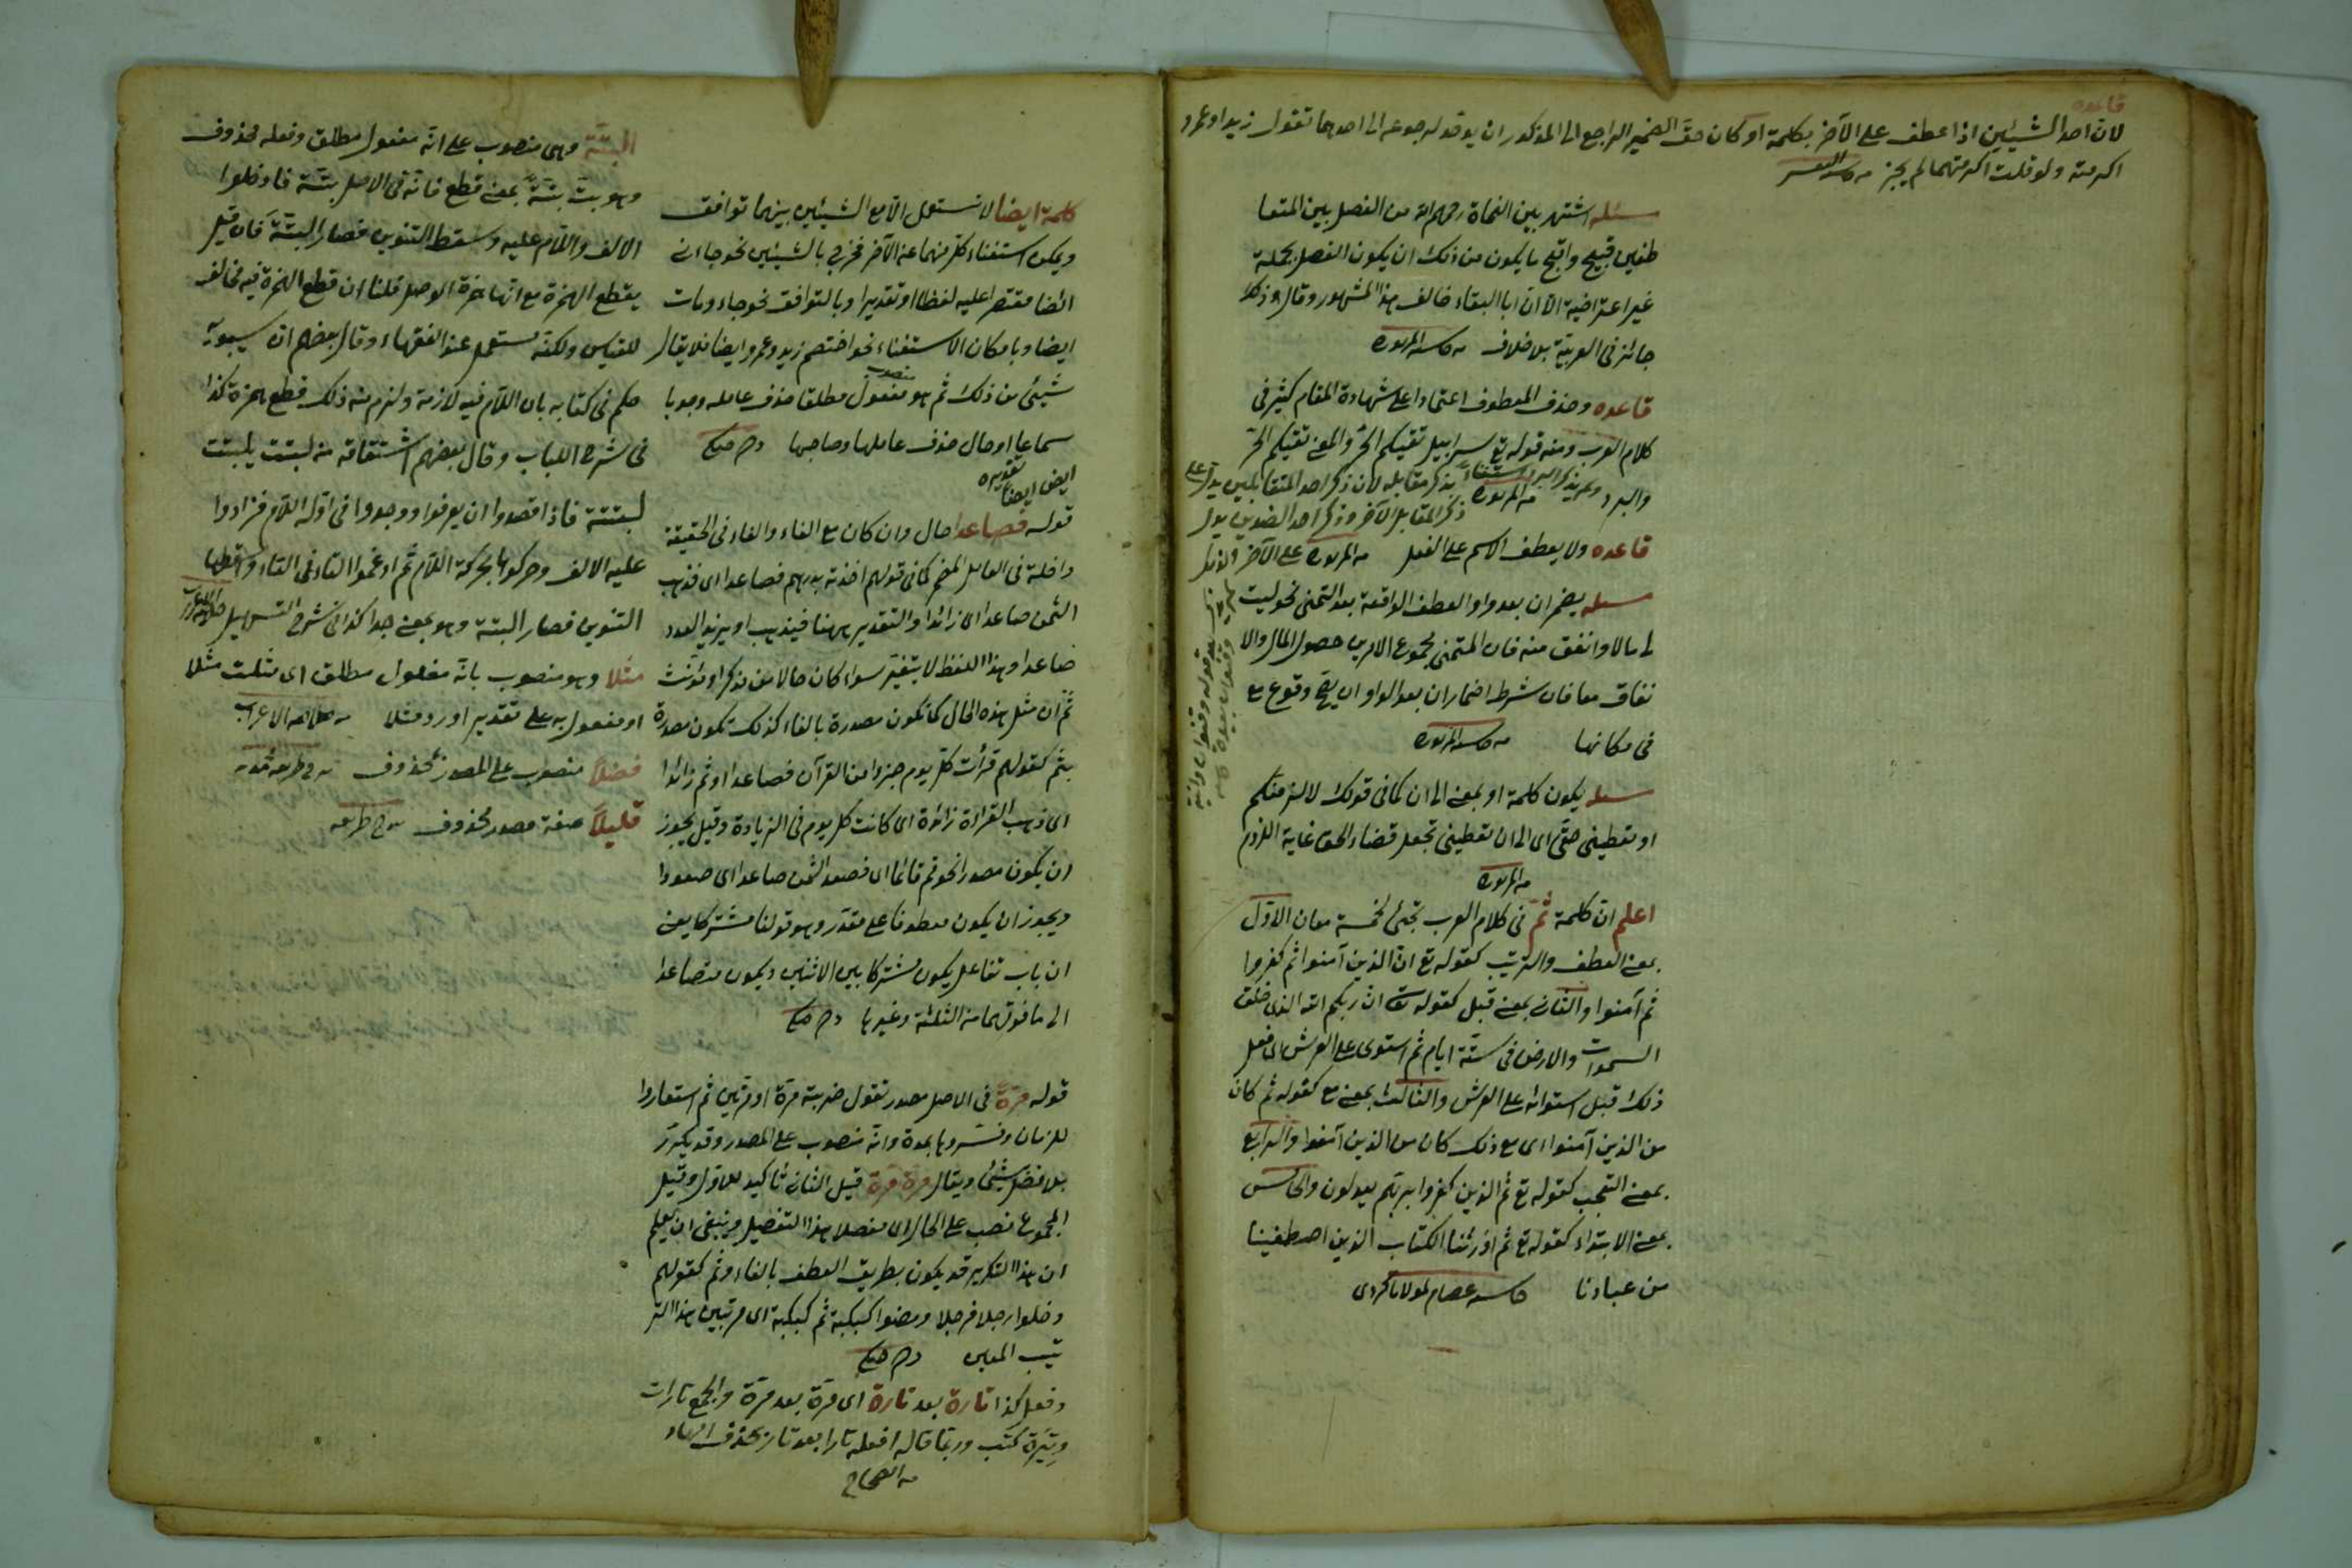 قاعده
لان احد الشيئين اذا عطف على الآخر بكلمة او كان حق الضمير الراجع الى المذكور ان يوحد لرجوعه الى احدهما تقول زيد او عمرو
اكرمته ولو قلت اكرمتهما لم يجز
مسئله اشتهر بين النحاة رحمهم الله من الفصل بين المتعا
طفين قبيح واقبح ما يكون من ذلك ان يكون الفصل بجملة
غير اعتراضية الا ان ابا البقاء خالف هذا المشهور وقال وذلك
جائز فى العربية بلا خلاف
قاعده وحذف المعطوف اعتمادا على شهادة المقام كثير فى
كلام العرب ومنه قوله تع سرابيل تقيكم الحر والمعنى تقيكم الحر
والبرد ولم يذكر البرد استغناء بذكر مقابله لان ذكر احد المتقابلين يدل على
ذكر المقابل الآخر وذكر احد الضدين يدل
قاعده ولا يعطف الاسم على الفعل على الآخر
مسله يضمر ان بعد واو العطف الواقعة بعد التمنى نحو ليت
لى مالا وانفق منه فان المتمنى مجموع الامرين حصول المال والا
نفاق معا فان شرط اضمار ان بعد الواو ان يصح وقوع مع
فى مكانها
مسله يكون كلمة او بمعنى الى ان كما فى قولك لالزمنكم
او تعطينى حقى اى الى ان تعطينى تجعل قضاء الحق غاية اللزوم
اعلم ان كلمة ثم فى كلام العرب تجئ لخمسة معان الاول
بمعنى العطف والترتيب كقوله تع ان الذين آمنوا ثم كفروا
ثم آمنوا والثانى بمعنى قبل كقوله تع ان ربكم الله الذى خلق
السموات والارض فى ستة ايام ثم استوى على العرش اى فعل
ذلك قبل استوائه على العرش والثالث بمعنى مع كقوله ثم كان
من الذين آمنوا اى مع ذلك كان من الذين آمنوا والرابع
بمعنى التعجب كقوله تع ثم الذين كفروا بربهم يعدلون والخامس
بمعنى الابتداء كقوله تع ثم اورثنا الكتاب الذين اصطفينا
من عبادنا عصام لمولانا كردى
كلمة ايضا لا تستعمل الا مع الشيئين بينهما توافق
ويمكن استغناء كل منهما عن الآخر فخرج بالشيئين نحو جاءنى
ايضا مقتصرا عليه لفظا او تقديرا وبالتوافق نحو جاء ومات
ايضا وبامكان الاستغناء نحو اختصم زيد وعمرو ايضا فلا يقال
شيئ من ذلك ثم هو منصوب مفعول مطلقا حذف عامله وجوبا
سماعا او حال حذف عاملها وصاحبها
ايض ايضا تقديره
قوله فصاعدا حال وان كان مع الفاء والفاء فى الحقيقة
داخلة فى العامل المضمر كما فى قولهم اخذته بدرهم فصاعدا اى فذهب
الثمن صاعدا اى زائدا والتقدير ههنا فيذهب او يزيد العدد
صاعدا وهذا اللفظ لا يتغير سواء كان حالا من مذكر او مؤنث
ثم ان مثل هذه الحال كما تكون مصدرة بالفاء كذلك تكون مصدرة
بثم كقولهم قرأت كل يوم جزءا من القرآن فصاعدا او ثم زائدا
اى ذهب القراءة زائدة اى كانت كل يوم فى الزيادة وقيل يجوز
ان يكون مصدرا نحو قم قائما اى فصعد الثمن صاعدا اى صعودا
ويجوز ان يكون معطوفا على مقدر وهو قولنا مشتركا يعنى
ان باب تفاعل يكون مشتركا بين الاثنين ويكون فصاعدا
الى ما فوقهما من الثلثة وغيرها
قوله مرة فى الاصل مصدر تقول ضربته مرة او مرتين ثم استعاروا
للزمان وفسروها بمدة وانه منصوب على المصدر وقد يكرر
بلا فصل شيئ ويقال مرة مرة قيل الثانى تأكيد للاول وقيل
المجموع نصب على الحال اى مفصلا هذا التفصيل وينبغى ان يعلم
ان هذا التكرير قد يكون بطريق العطف بالفاء وثم كقولهم
دخلوا رجلا فرجلا ومضوا كبكبة ثم كبكبة اى مرتبين هذا التر
تيب المعين
وفعل كذا تارة بعد تارة اى مرة بعد مرة والجمع تارات
وتيرة كتب وربما قاله افعله تارا بعد تار بحذف الهاء
من الصحاح
البتة وهى منصوب على انه مفعول مطلق وفعله محذوف
وهو بت بتة بمعنى قطع فانه فى الاصل بتة فادخلوا
الالف واللام عليه وسقط التنوين فصار البتة فان قيل
يقطع الهمزة مع انها همزة الوصل قلنا ان قطع الهمزة فيه مخالف
للقياس ولكنه مستعمل عند الفقهاء وقال بعضهم ان سيبويه
حكم فى كتابه بان اللام فيه لازمة ولزم منه ذلك قطع همزة كذا
فى شرح اللباب وقال بعضهم اشتقاقه من لبتت يلبتت
لبتتة فاذا قصدوا ان يعرفوا ووجدوا فى اوله اللام فزادوا
عليه الالف وحركوا بحركة اللام ثم ادغموا التاء فى التاء وسقطها
التنوين فصار البتة وهو بمعنى جدا كذا فى شرح التسهيل
مثلا وهو منصوب بانه مفعول مطلق اى مثلت مثلا
او مفعول به على تقدير اورد مثلا
فضلا منصوب على المصدر محذوف
قليلا صفة مصدر محذوف